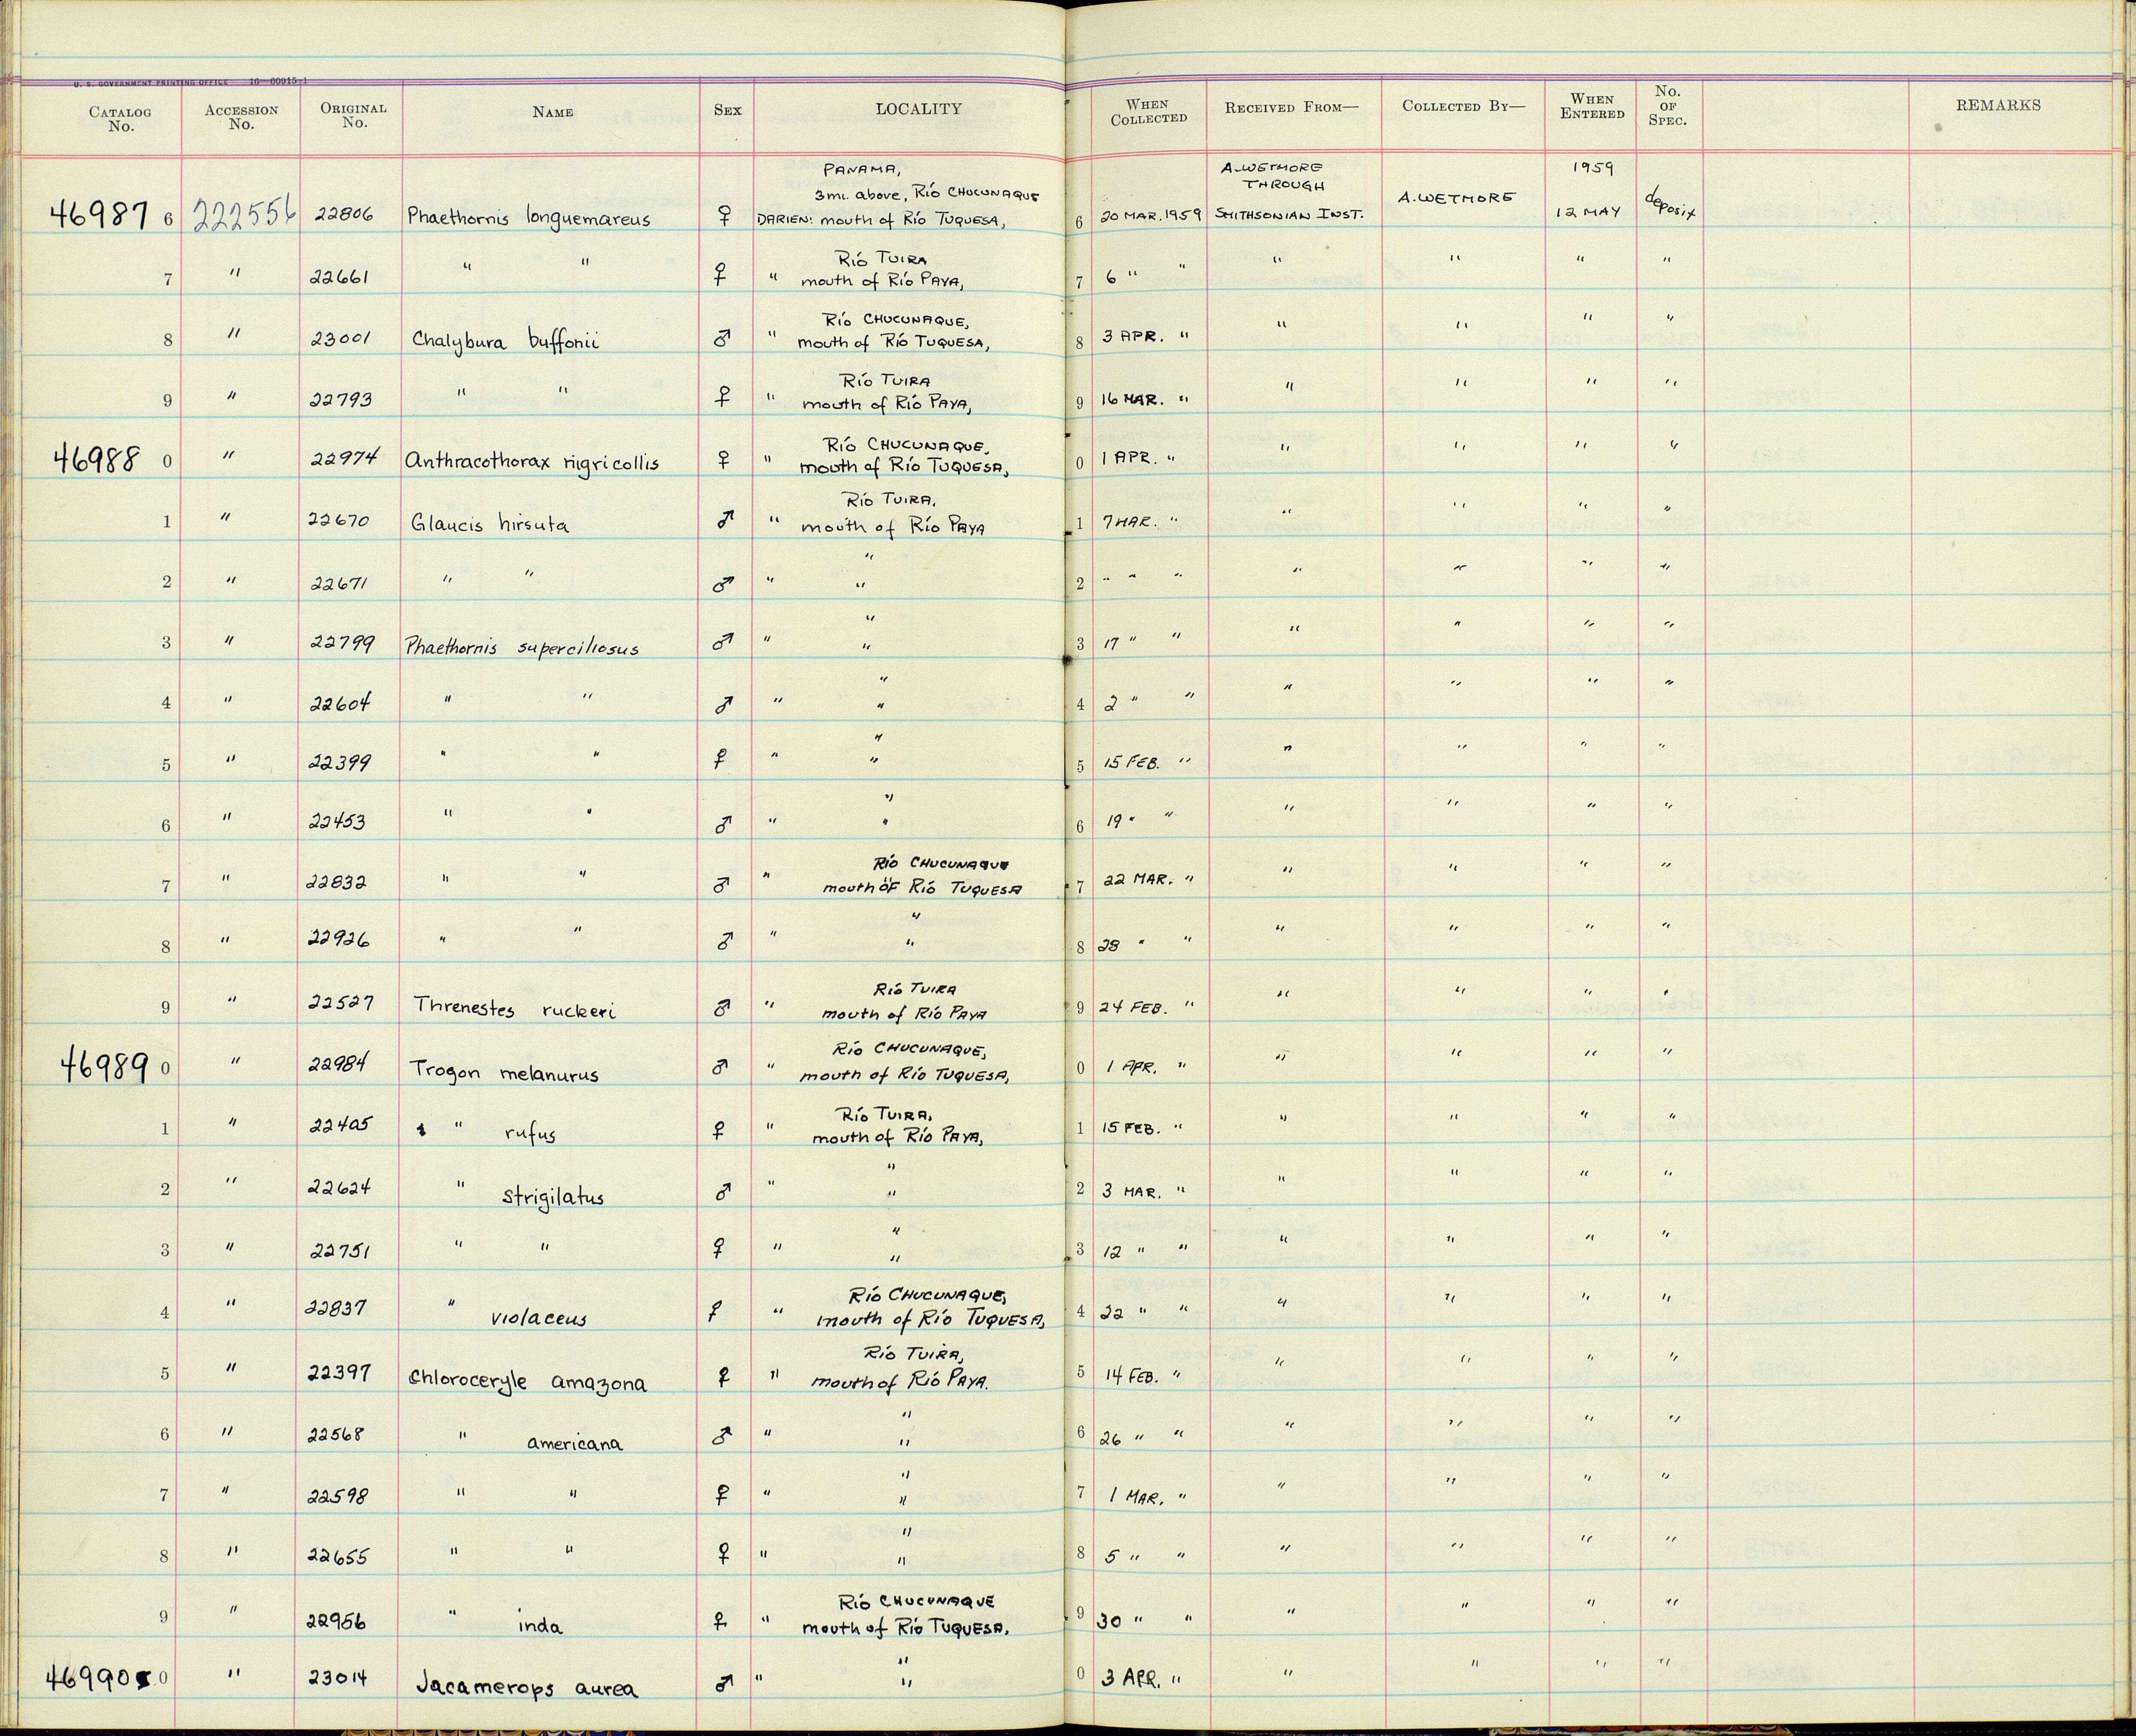 U. S. GOVERNMENT PRINTING OFFICE 16—60915-1
CATALOG No. ACCESSION No. ORIGINAL No. NAME SEX LOCALITY WHEN COLLECTED RECEIVED FROM— COLLECTED BY— WHEN ENTERED No. OF SPEC. REMARKS
PANAMA, A.WETMORE 1959
3mi. above, Río CHUCUNAQUE THROUGH A.WETMORE
46987 6 222556 22806 Phaethornis longuemareus ♀ DARIEN: mouth of Río TUQUESA, 6 20 MAR. 1959 SMITHSONIAN INST. 12 MAY deposit
Río TUIRA
7 " 22661 " " ♀ " mouth of Río PAYA, 7 6 " " " " " "
Río CHUCUNAQUE,
8 " 23001 Chalybura buffonii ♂ " mouth of Río TUQUESA, 8 3 APR. " " " " "
Río TUIRA
9 " 22793 " " ♀ " mouth of Río PAYA, 9 16 MAR. " " " " "
Río CHUCUNAQUE,
46988 0 " 22974 Anthracothorax nigricollis ♀ " mouth of Río TUQUESA, 0 1 APR. " " " " "
Río TUIRA,
1 " 22670 Glaucis hirsuta ♂ " mouth of Río PAYA 1 7 MAR. " " " " "
"
2 " 22671 " " ♂ " " 2 " " " " " " "
"
3 " 22799 Phaethornis superciliosus ♂ " " 3 17 " " " " " "
"
4 " 22604 " " ♂ " " 4 2 " " " " " "
"
5 " 22399 " " ♀ " " 5 15 FEB. " " " " "
"
6 " 22453 " " ♂ " " 6 19 " " " " " "
Río CHUCUNAQUE
7 " 22832 " " ♂ " mouth OF Río TUQUESA 7 22 MAR. " " " " "
"
8 " 22926 " " ♂ " " 8 28 " " " " " "
Río TUIRA
9 " 22527 Threnestes ruckeri ♂ " mouth of Río PAYA 9 24 FEB. " " " " "
Río CHUCUNAQUE,
46989 0 " 22984 Trogon melanurus ♂ " mouth of Río TUQUESA, 0 1 APR. " " " " "
Río TUIRA,
1 " 22405 " rufus ♀ " mouth of Río PAYA, 1 15 FEB. " " " " "
"
2 " 22624 " strigilatus ♂ " " 2 3 MAR. " " " " "
"
3 " 22751 " " ♀ " " 3 12 " " " " " "
Río CHUCUNAQUE,
4 " 22837 " violaceus ♀ " mouth of Río TUQUESA, 4 22 " " " " " "
Río TUIRA,
5 " 22397 Chloroceryle amazona ♀ " mouth of Río PAYA. 5 14 FEB. " " " " "
"
6 " 22568 " americana ♂ " " 6 26 " " " " " "
"
7 " 22598 " " ♀ " " 7 1 MAR. " " " " "
"
8 " 22655 " " ♀ " " 8 5 " " " " " "
Río CHUCUNAQUE
9 " 22956 " inda ♀ " mouth of Río TUQUESA. 9 30 " " " " " "
"
46990 0 " 23014 Jacamerops aurea ♂ " " 0 3 APR. " " " " "